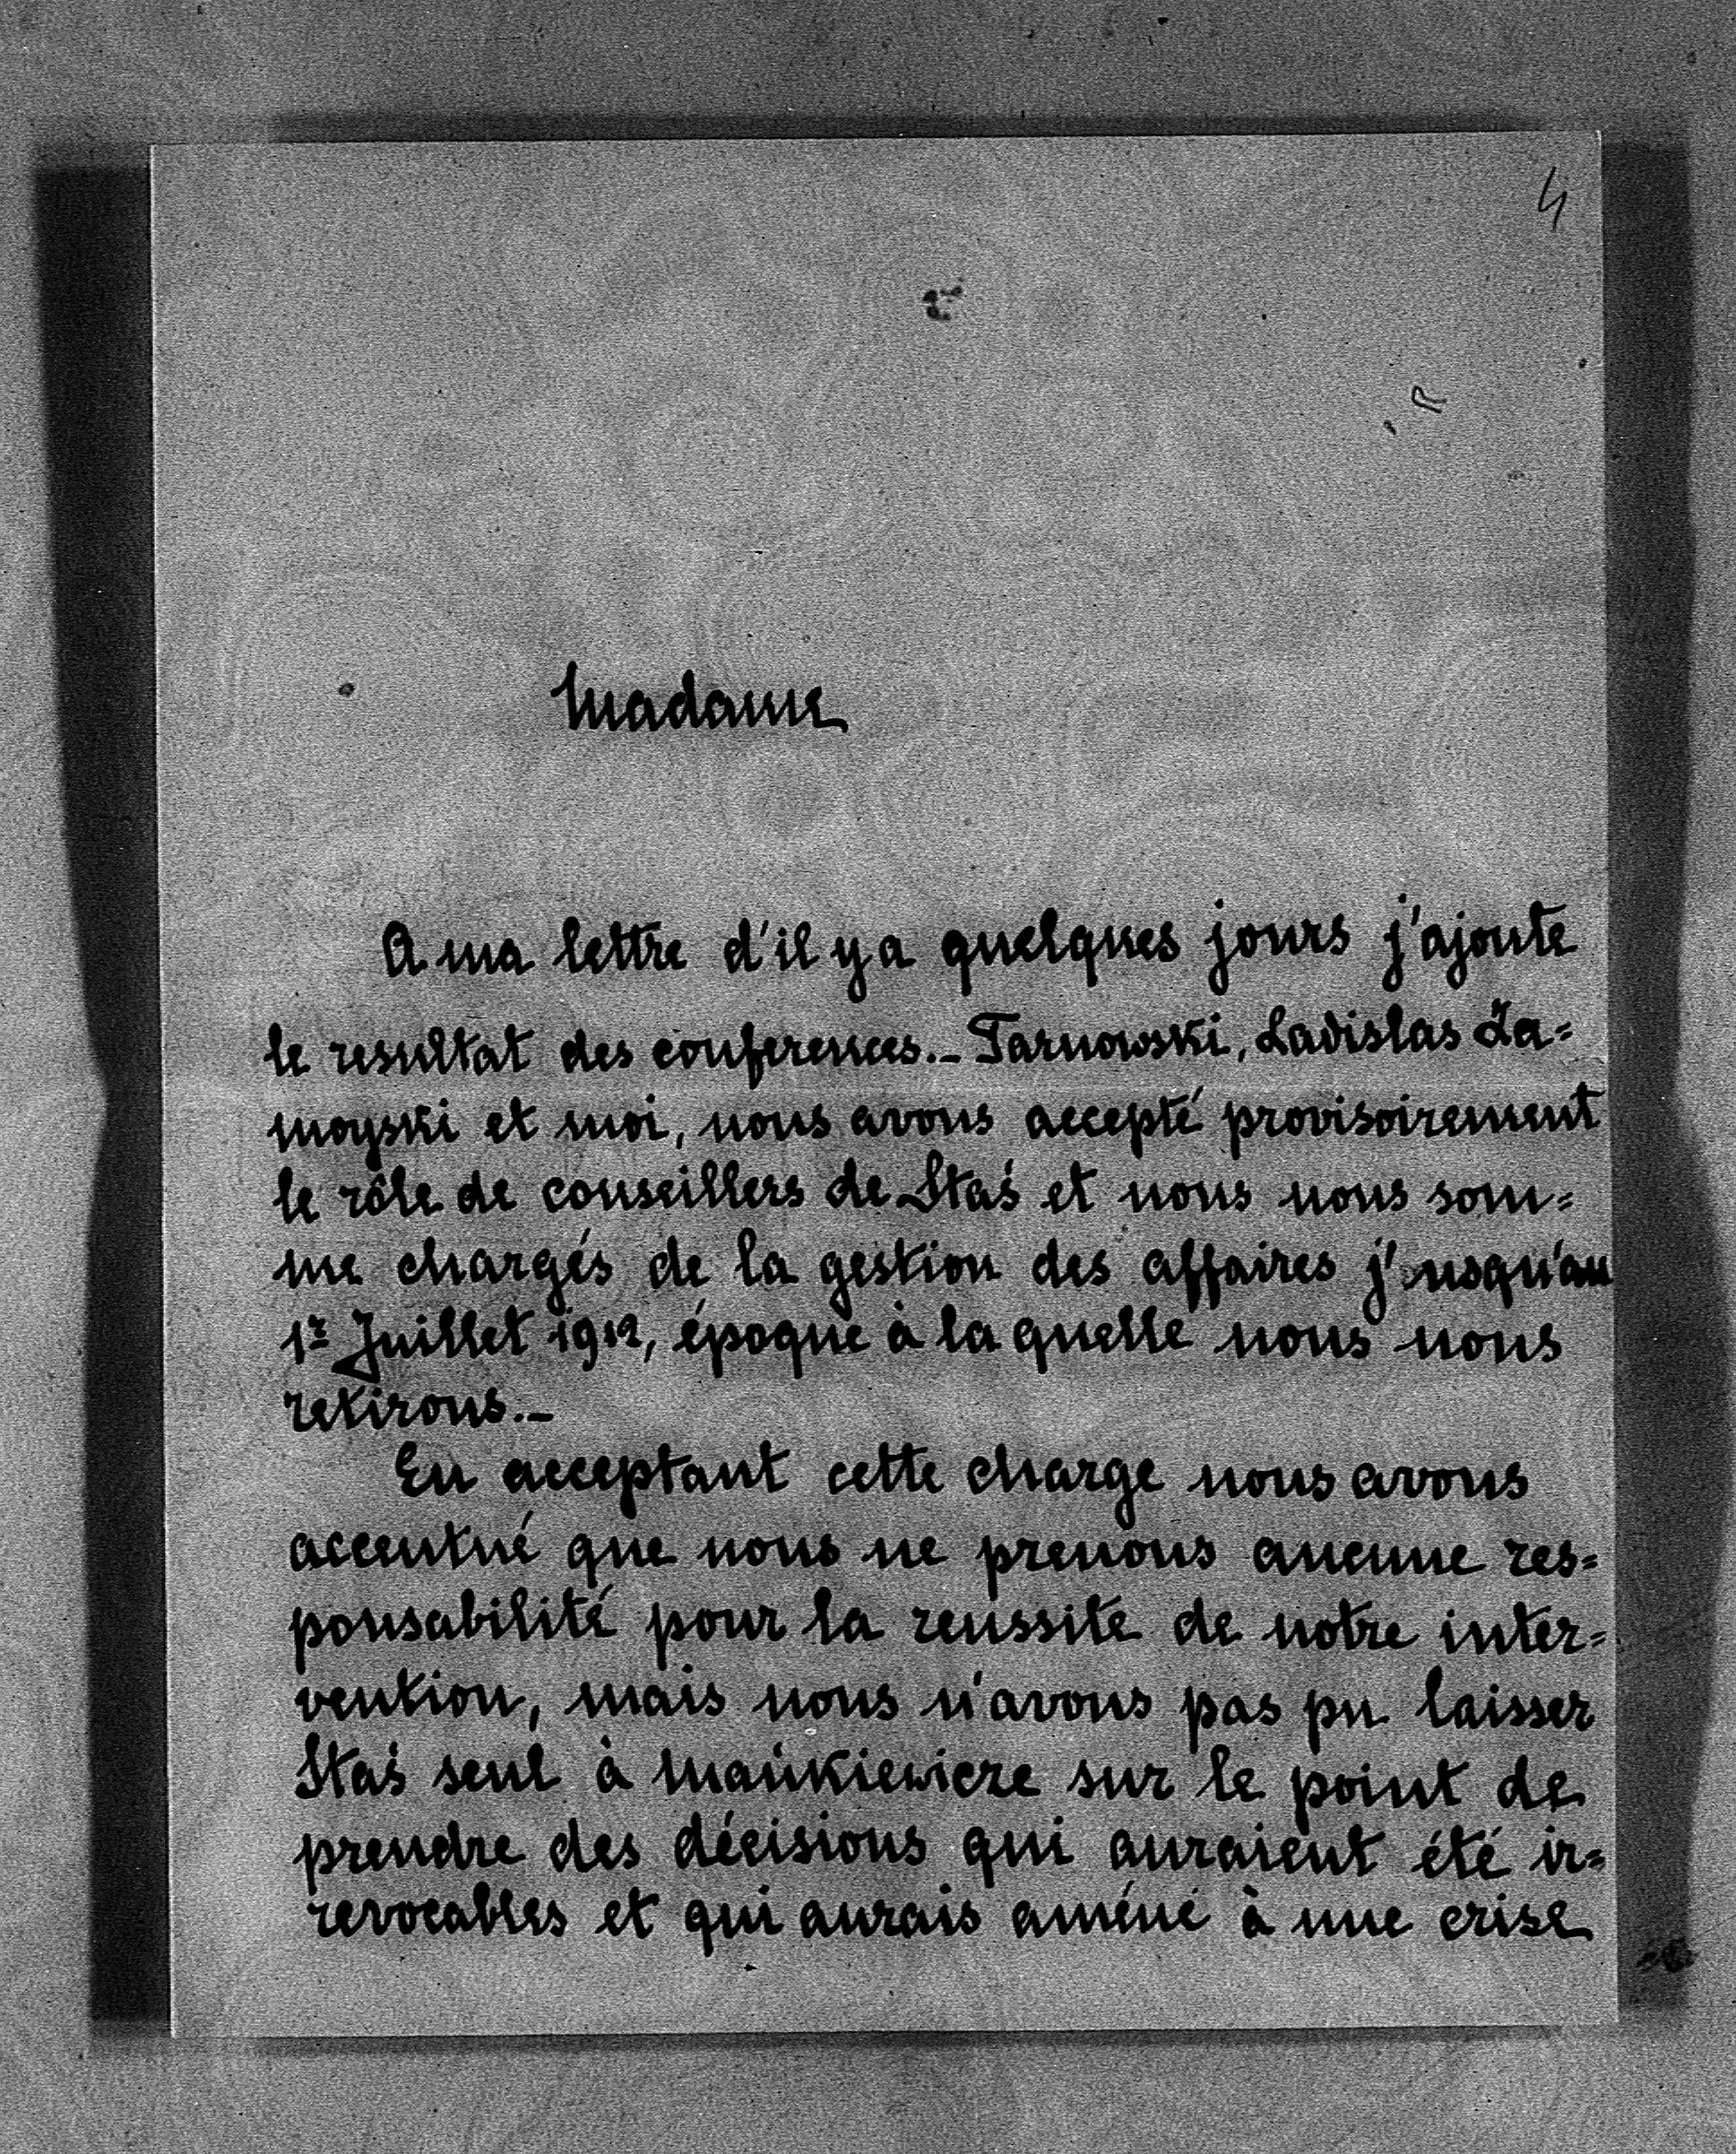 4
Madame
A ma lettre d'il y a quelques jours j'ajoute
le resultat des conferences._ Tarnowski, Ladislas Za=
moyski et moi, nous avons accepté provisoirement
le rôle de conseillers de Staś et nous nous som=
me chargés de la gestion des affaires j'usqu'au
1r Juillet 1912, époque à la quelle nous nous
retirons._
En acceptant cette charge nous avons
accentué que nous ne prenons aucune res=
ponsabilité pour la reussite de notre inter=
vention, mais nous n'avons pas pu laisser
Staś seul à Mańkiewicze sur le point de
prendre des décisions qui auraient été ir=
revocables et qui aurais améné à une crise